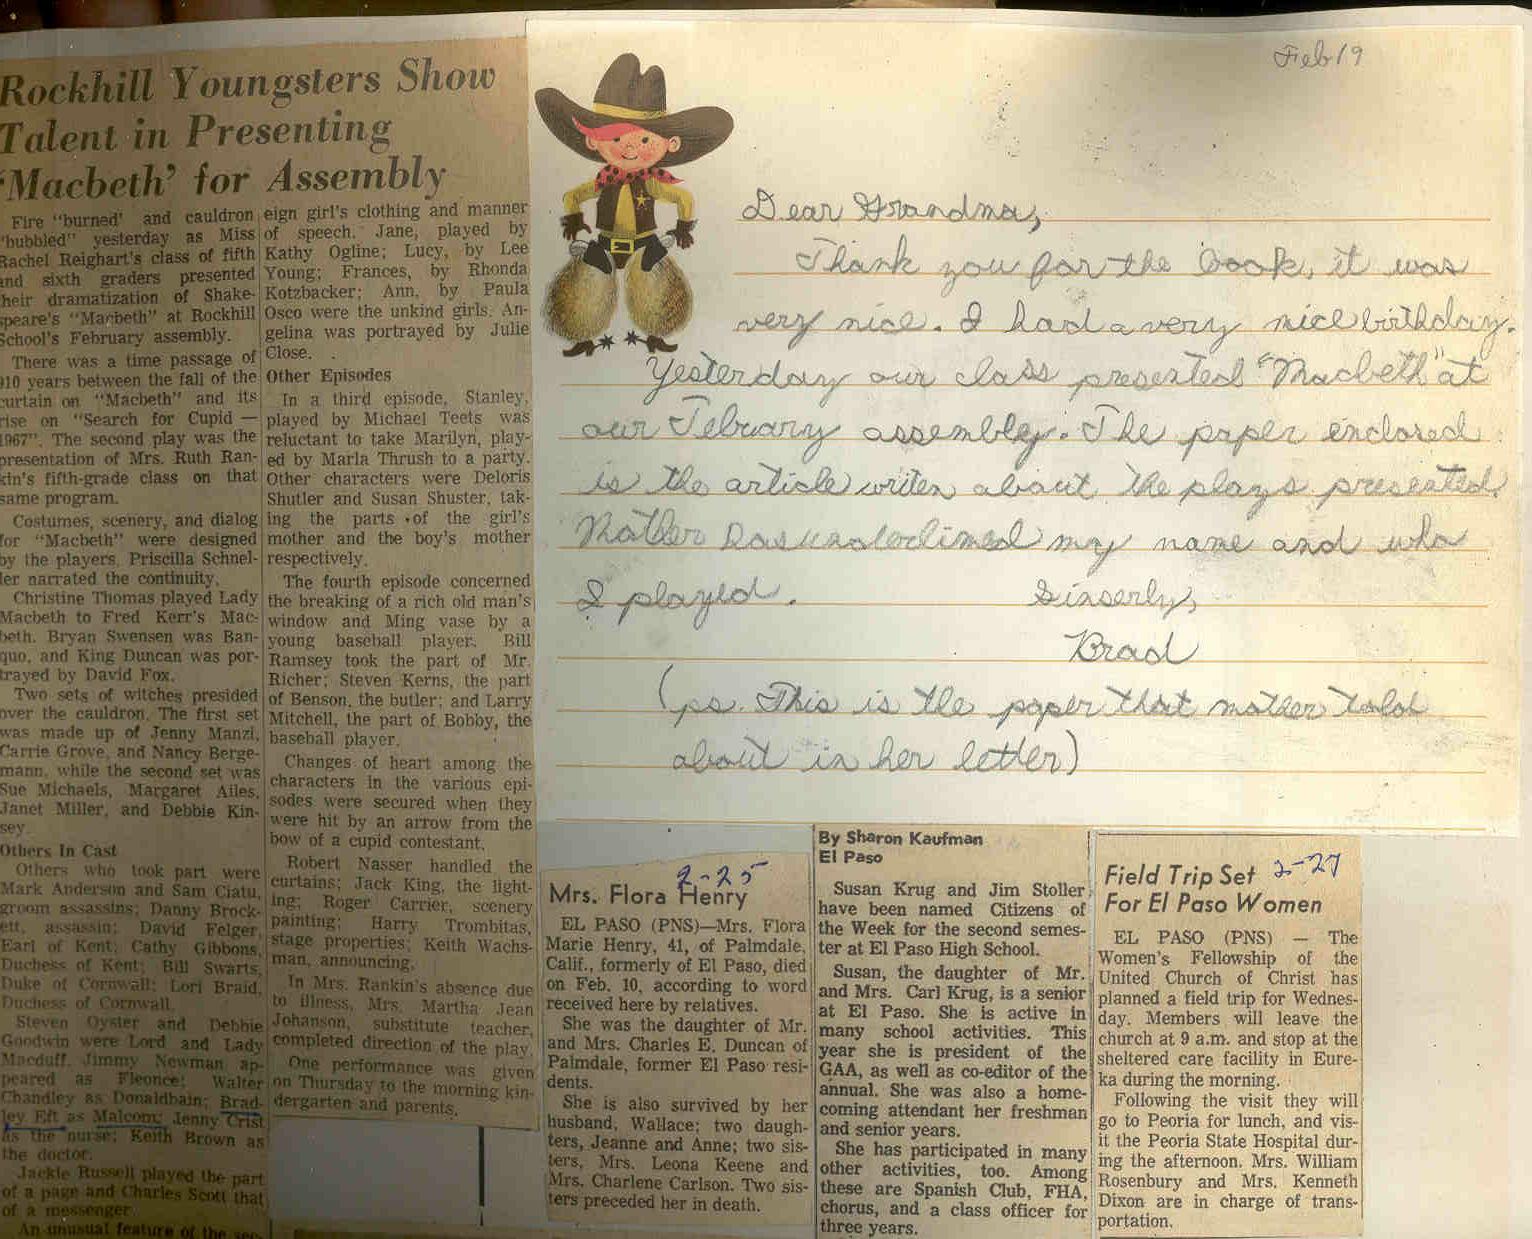 Rockhill Youngsters Show
Talent in Presenting
'Macbeth' for Assembly
Fire "burned' and cauldron
"bubbled" yesterday as Miss
Rachel Reighart's class of fifth
and sixth graders presented
their dramatization of Shake-
speare's "Macbeth" at Rockhill
School's February assembly.
There was a time passage of
910 years between the fall of the
curtain on "Macbeth" and its
rise on "Search for Cupid —
1967". The second play was the
presentation of Mrs. Ruth Ran-
kin's fifth-grade class on that
same program.
Costumes, scenery, and dialog
for "Macbeth" were designed
by the players. Priscilla Schnel-
ler narrated the continuity.
Christine Thomas played Lady
Macbeth to Fred Kerr's Mac-
beth. Bryan Swensen was Ban-
quo, and King Duncan was por-
trayed by David Fox.
Two sets of witches presided
over the cauldron. The first set
was made up of Jenny Manzi,
Carrie Grove, and Nancy Berge-
mann, while the second set was
Sue Michaels, Margaret Ailes,
Janet Miller, and Debbie Kin-
sey.
Others In Cast
Others who took part were
Mark Anderson and Sam Ciatu,
groom assassins; Danny Brock-
ett, assassin; David Felger,
Earl of Kent; Cathy Gibbons,
Duchess of Kent; Bill Swarts,
Duke of Cornwall; Lori Braid,
Duchess of Cornwall.
Steven Oyster and Debbie
Goodwin were Lord and Lady
Macduff. Jimmy Newman ap-
peared as Fleonce; Walter
Chandley as Donaldbain; Brad-
ley Eft as Malcom; Jenny Crist
as the nurse; Keith Brown as
the doctor.
Jackie Russell played the part
of a page and Charles Scott that
of a messenger.
An unusual feature of the sec-
eign girl's clothing and manner
of speech. Jane, played by
Kathy Ogline; Lucy, by Lee
Young; Frances, by Rhonda
Kotzbacker; Ann, by Paula
Osco were the unkind girls. An-
gelina was portrayed by Julie
Close.
Other Episodes
In a third episode, Stanley,
played by Michael Teets was
reluctant to take Marilyn, play-
ed by Marla Thrush to a party.
Other characters were Deloris
Shutler and Susan Shuster, tak-
ing the parts of the girl's
mother and the boy's mother
respectively.
The fourth episode concerned
the breaking of a rich old man's
window and Ming vase by a
young baseball player. Bill
Ramsey took the part of Mr.
Richer; Steven Kerns, the part
of Benson, the butler; and Larry
Mitchell, the part of Bobby, the
baseball player.
Changes of heart among the
characters in the various epi-
sodes were secured when they
were hit by an arrow from the
bow of a cupid contestant.
Robert Nasser handled the
curtains; Jack King, the light-
ing; Roger Carrier, scenery
painting; Harry Trombitas,
stage properties; Keith Wachs-
man, announcing.
In Mrs. Rankin's absence due
to illness, Mrs. Martha Jean
Johanson, substitute teacher,
completed direction of the play.
One performance was given
on Thursday to the morning kin-
dergarten and parents.
Feb 19
Dear Grandma,
Thank you for the book, it was
very nice. I had a very nice birthday.
Yesterday our class presented "Macbeth" at
our Febuary assembley. The paper enclosed
is the article writen about the plays presented.
Mother has underlined my name and who
I played. Sinserly,
Brad
(ps. This is the paper that mother told
about in her letter)
2-25
Mrs. Flora Henry
EL PASO (PNS)—Mrs. Flora
Marie Henry, 41, of Palmdale,
Calif., formerly of El Paso, died
on Feb. 10, according to word
received here by relatives.
She was the daughter of Mr.
and Mrs. Charles E. Duncan of
Palmdale, former El Paso resi-
dents.
She is also survived by her
husband, Wallace; two daugh-
ters, Jeanne and Anne; two sis-
ters, Mrs. Leona Keene and
Mrs. Charlene Carlson. Two sis-
ters preceded her in death.
By Sharon Kaufman
El Paso
Susan Krug and Jim Stoller
have been named Citizens of
the Week for the second semes-
ter at El Paso High School.
Susan, the daughter of Mr.
and Mrs. Carl Krug, is a senior
at El Paso. She is active in
many school activities. This
year she is president of the
GAA, as well as co-editor of the
annual. She was also a home-
coming attendant her freshman
and senior years.
She has participated in many
other activities, too. Among
these are Spanish Club, FHA,
chorus, and a class officer for
three years.
Field Trip Set 2-27
For El Paso Women
EL PASO (PNS) — The
Women's Fellowship of the
United Church of Christ has
planned a field trip for Wednes-
day. Members will leave the
church at 9 a.m. and stop at the
sheltered care facility in Eure-
ka during the morning.
Following the visit they will
go to Peoria for lunch, and vis-
it the Peoria State Hospital dur-
ing the afternoon. Mrs. William
Rosenbury and Mrs. Kenneth
Dixon are in charge of trans-
portation.